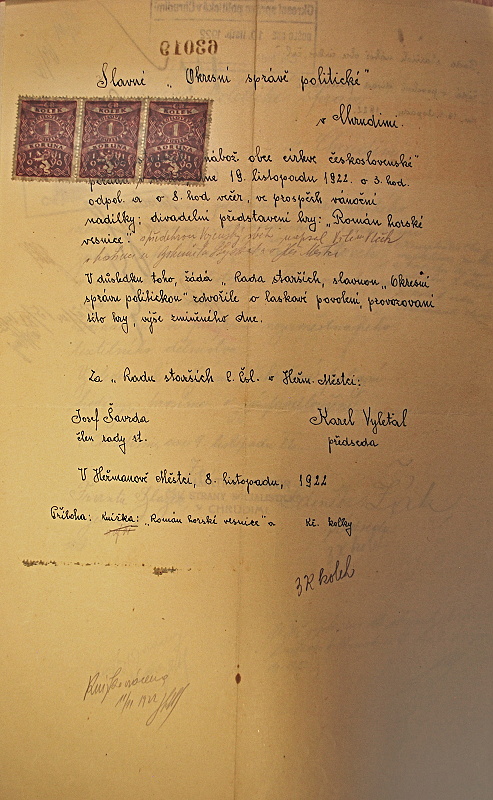 63019
Slavné „Okresní správě politické"
v Chrudimi.
KOLEK KOLEK KOLEK
1 1 1
KORUNA KORUNA KORUNA
nábož. obce církve československé"
19. listopadu 1922. o 3. hod.
odpol. a o 8. hod večer, ve prospěch vánoční
nadílky; divadelní představení hry: „Román horské
vesnice".
V důsledku toho, žádá „Rada starších, slavnou „Okresní
správu politickou" zdvořile o laskavé povolení, provozování
této hry, výše zmíněného dne.
Za „Radu starších c. čsl. v Heřm. Městci:
Josef Šavrda Karel Vyletal
člen rady st. předseda
V Heřmanově Městci, 8. listopadu, 1922
Příloha: knížka: „Román horské vesnice" a kolky
3 K kolek